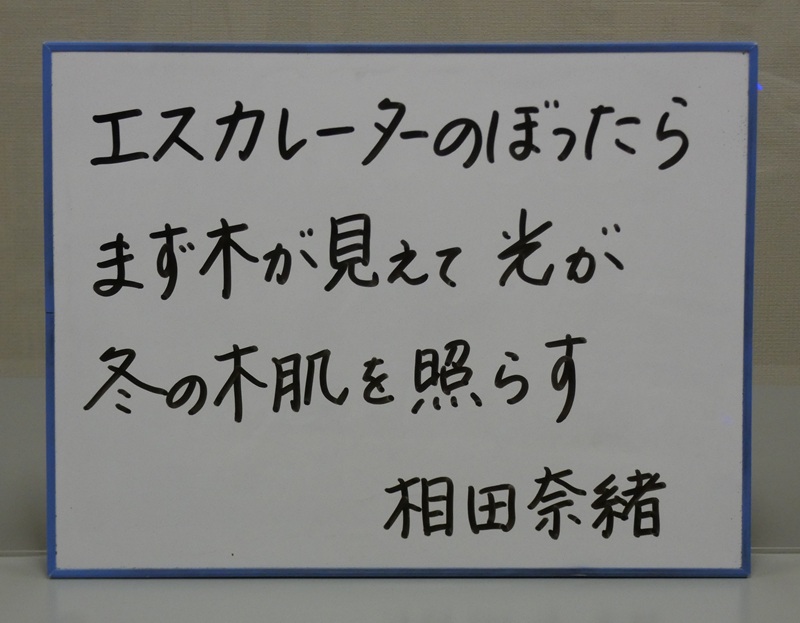 エスカレーターのぼったら
まず木が見えて 光が
冬の木肌を照らす
相田奈緒